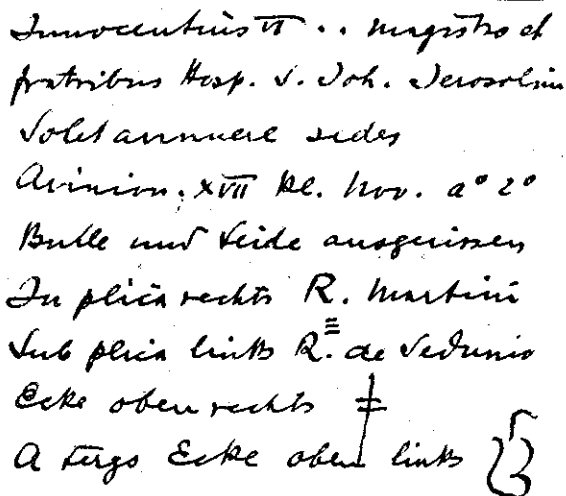 Innocentius VI .. magistro et
fratribus Hosp. S. Joh. Jerosolim
Solet annuere sedes
Avinion. XVII kl. Nov. a° 2°
Bulle und Seide ausgerissen
In plica rechts R. Martini
Sub plica links R. de Sedunio
Ecke oben rechts
A tergo Ecke oben links